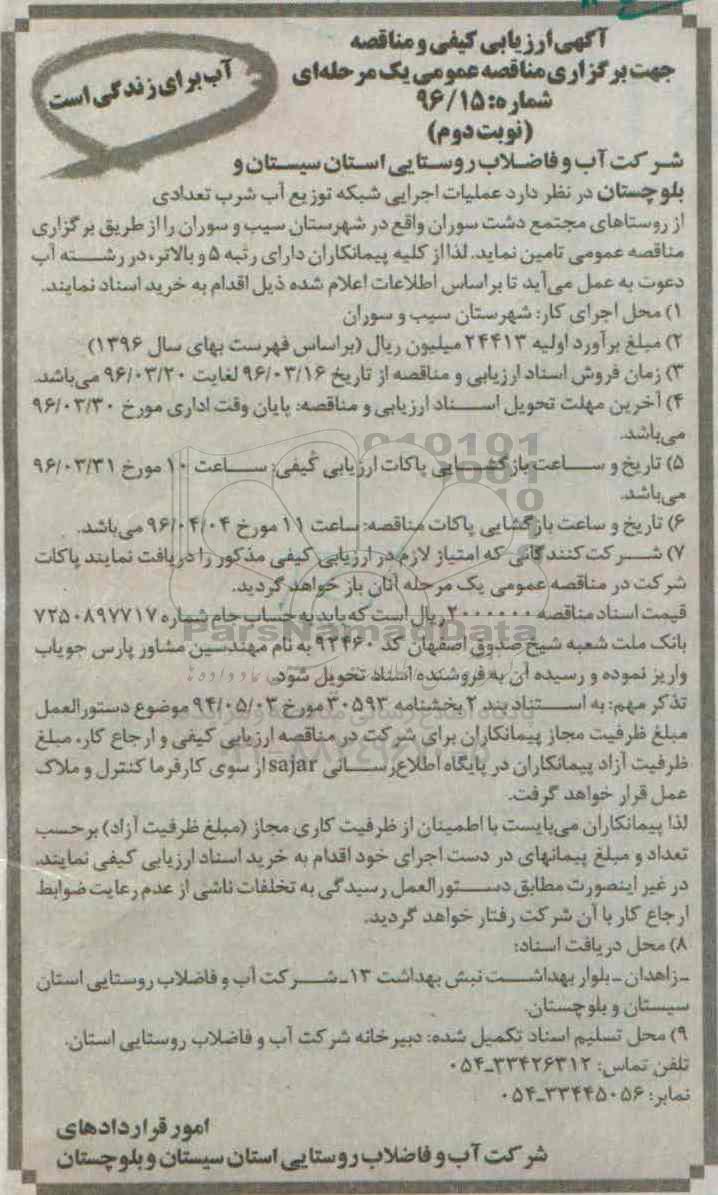 آگهی ارزیابی کیفی و مناقصه
جهت برگزاری مناقصه عمومی یک مرحله‌ای
شماره: ۹۶/۱۵
(نوبت دوم)
آب برای زندگی است
شرکت آب و فاضلاب روستایی استان سیستان و
بلوچستان در نظر دارد عملیات اجرایی شبکه توزیع آب شرب تعدادی
از روستاهای مجتمع دشت سوران واقع در شهرستان سیب و سوران را از طریق برگزاری
مناقصه عمومی تامین نماید. لذا از کلیه پیمانکاران دارای رتبه ۵ و بالاتر، در رشته آب
دعوت به عمل می‌آید تا براساس اطلاعات اعلام شده ذیل اقدام به خرید اسناد نمایند.
۱) محل اجرای کار: شهرستان سیب و سوران
۲) مبلغ برآورد اولیه ۲۴۴۱۳ میلیون ریال (براساس فهرست بهای سال ۱۳۹۶)
۳) زمان فروش اسناد ارزیابی و مناقصه از تاریخ ۹۶/۰۳/۱۶ لغایت ۹۶/۰۳/۲۰ می‌باشد.
۴) آخرین مهلت تحویل اسناد ارزیابی و مناقصه: پایان وقت اداری مورخ ۹۶/۰۳/۳۰
می‌باشد.
۵) تاریخ و ساعت بازگشایی پاکات ارزیابی کیفی: ساعت ۱۰ مورخ ۹۶/۰۳/۳۱
می‌باشد.
۶) تاریخ و ساعت بازگشایی پاکات مناقصه: ساعت ۱۱ مورخ ۹۶/۰۴/۰۴ می‌باشد.
۷) شرکت کنندگانی که امتیاز لازم در ارزیابی کیفی مذکور را دریافت نمایند پاکات
شرکت در مناقصه عمومی یک مرحله آنان باز خواهد گردید.
قیمت اسناد مناقصه ۲۰۰۰۰۰۰ ریال است که باید به حساب جام شماره ۷۲۵۰۸۹۷۷۱۷
بانک ملت شعبه شیخ صدوق اصفهان کد ۹۲۴۶۰ به نام مهندسین مشاور پارس جویاب
واریز نموده و رسیده آن به فروشنده اسناد تحویل شود.
تذکر مهم: به استناد بند ۲ بخشنامه ۳۰۵۹۳ مورخ ۹۴/۰۵/۰۳ موضوع دستورالعمل
مبلغ ظرفیت مجاز پیمانکاران برای شرکت در مناقصه ارزیابی کیفی و ارجاع کار، مبلغ
ظرفیت آزاد پیمانکاران در پایگاه اطلاع‌رسانی sajar از سوی کارفرما کنترل و ملاک
عمل قرار خواهد گرفت.
لذا پیمانکاران می‌بایست با اطمینان از ظرفیت کاری مجاز (مبلغ ظرفیت آزاد) برحسب
تعداد و مبلغ پیمانهای در دست اجرای خود اقدام به خرید اسناد ارزیابی کیفی نمایند.
در غیر اینصورت مطابق دستورالعمل رسیدگی به تخلفات ناشی از عدم رعایت ضوابط
ارجاع کار با آن شرکت رفتار خواهد گردید.
۸) محل دریافت اسناد:
ـ زاهدان ـ بلوار بهداشت نبش بهداشت ۱۳ ـ شرکت آب و فاضلاب روستایی استان
سیستان و بلوچستان.
۹) محل تسلیم اسناد تکمیل شده: دبیرخانه شرکت آب و فاضلاب روستایی استان.
تلفن تماس: ۳۳۴۲۶۳۱۲-۰۵۴
نمابر: ۳۳۴۴۵۰۵۶-۰۵۴
امور قراردادهای
شرکت آب و فاضلاب روستایی استان سیستان و بلوچستان
ParsNamadData